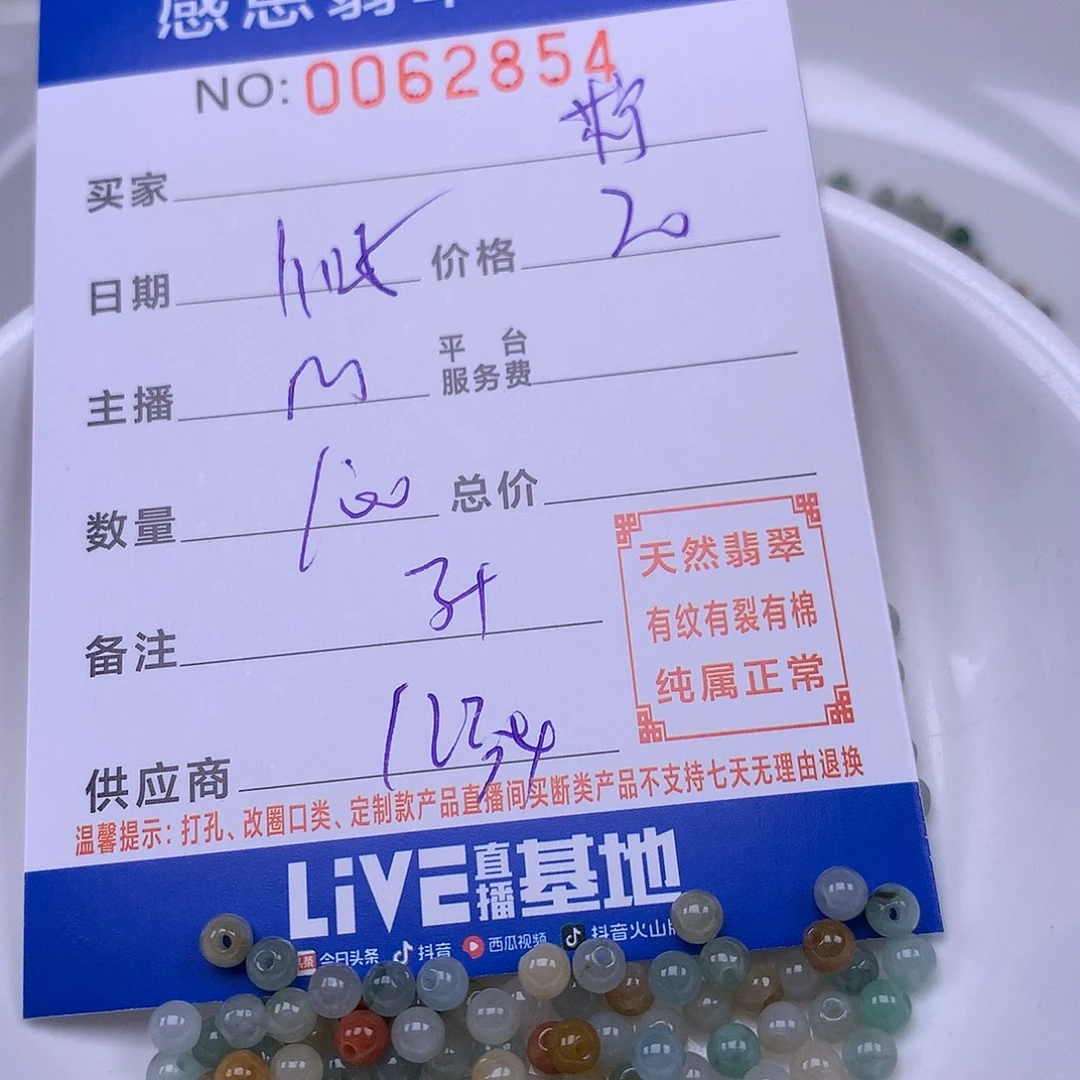 感恩翡翠
NO: 0062854
买家
日期 价格 20
主播 M 平台服务费
数量 100 总价
备注
供应商
天然翡翠
有纹有裂有棉
纯属正常
温馨提示：打孔、改圈口类、定制款产品直播间买断类产品不支持七天无理由退换
LiVE直播基地
今日头条 抖音 西瓜视频 抖音火山版